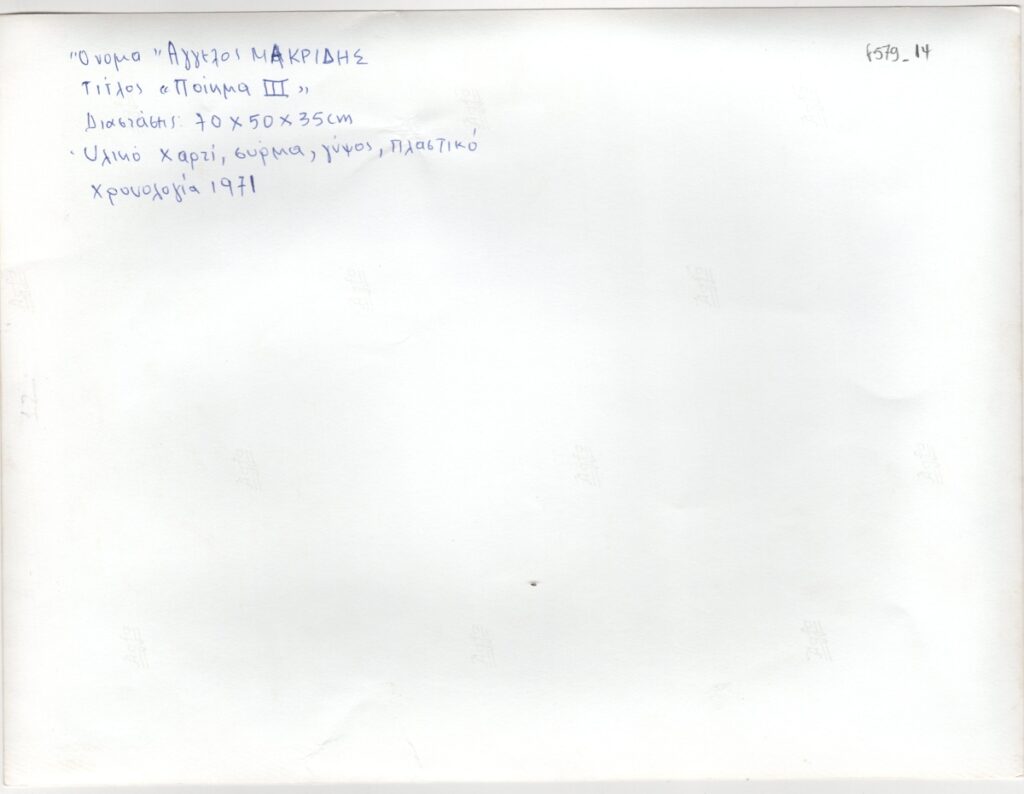 Ὄνομα Ἄγγελος ΜΑΚΡΙΔΗΣ
f579_14
Τίτλος «Ποίημα III»
Διαστάσης: 70 x 50 x 35cm
Ὑλικό χαρτί, σύρμα, γύψος, πλαστικό
Χρονολογία 1971